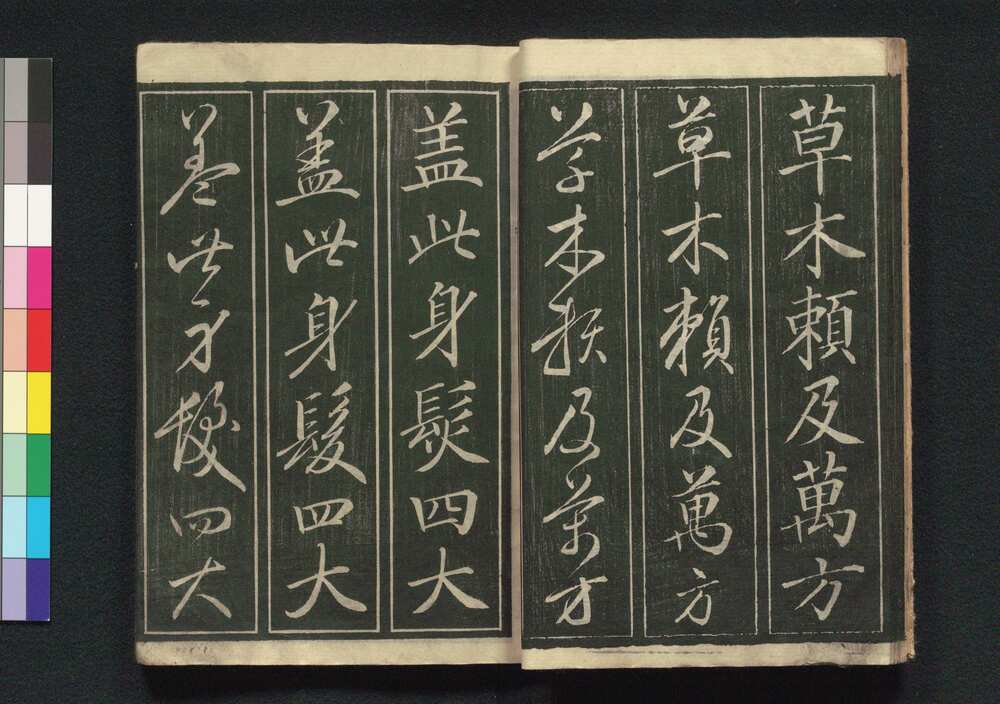 草木頼及萬方
草木頼及萬方
草木頼及萬方
盖此身髮四大
盖此身髮四大
盖此身髮四大